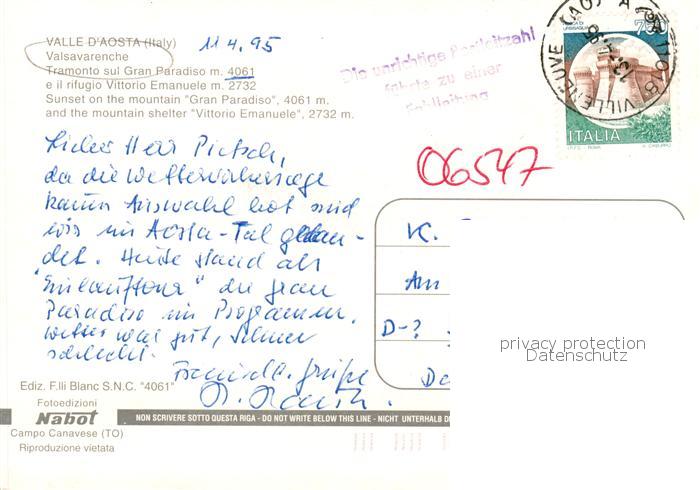 VALLE D'AOSTA (Italy)
11.4.95
Valsavarenche
Tramonto sul Gran Paradiso m. 4061
e il rifugio Vittorio Emanuele m. 2732
Sunset on the mountain "Gran Paradiso", 4061 m.
and the mountain shelter "Vittorio Emanuele", 2732 m.
Die unrichtige Postleitzahl
führte zu einer
Fehlleitung
750
11018 VILLENEUVE (AO) A
13.4.95
ITALIA
I.P.Z.S. - ROMA
06547
Lieber Herr Pietsch,
da die Wettervorhersage
kaum Auswahl bot sind
wir im Aosta-Tal gelan-
det. Heute stand als
"Einlauftour" die Gran
Paradiso im Programm.
Wetter war gut, Schnee
schlecht.
Freundl. Grüße
K.
Am
D-?
privacy protection
Datenschutz
Ediz. F.lli Blanc S.N.C. "4061"
Fotoedizioni
Nabot
Campo Canavese (TO)
Riproduzione vietata
NON SCRIVERE SOTTO QUESTA RIGA - DO NOT WRITE BELOW THIS LINE - NICHT UNTERHALB D